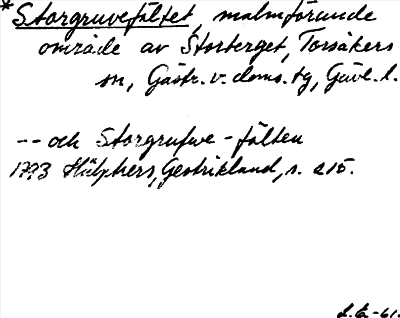 *Storgruvefältet, malmförande
område av Storberget, Torsåkers
sn, Gästr. v. doms. tg, Gävl. l.
-- och Storgrufwe-fälten
1793 Hülphers, Gestrikland, s. 215.